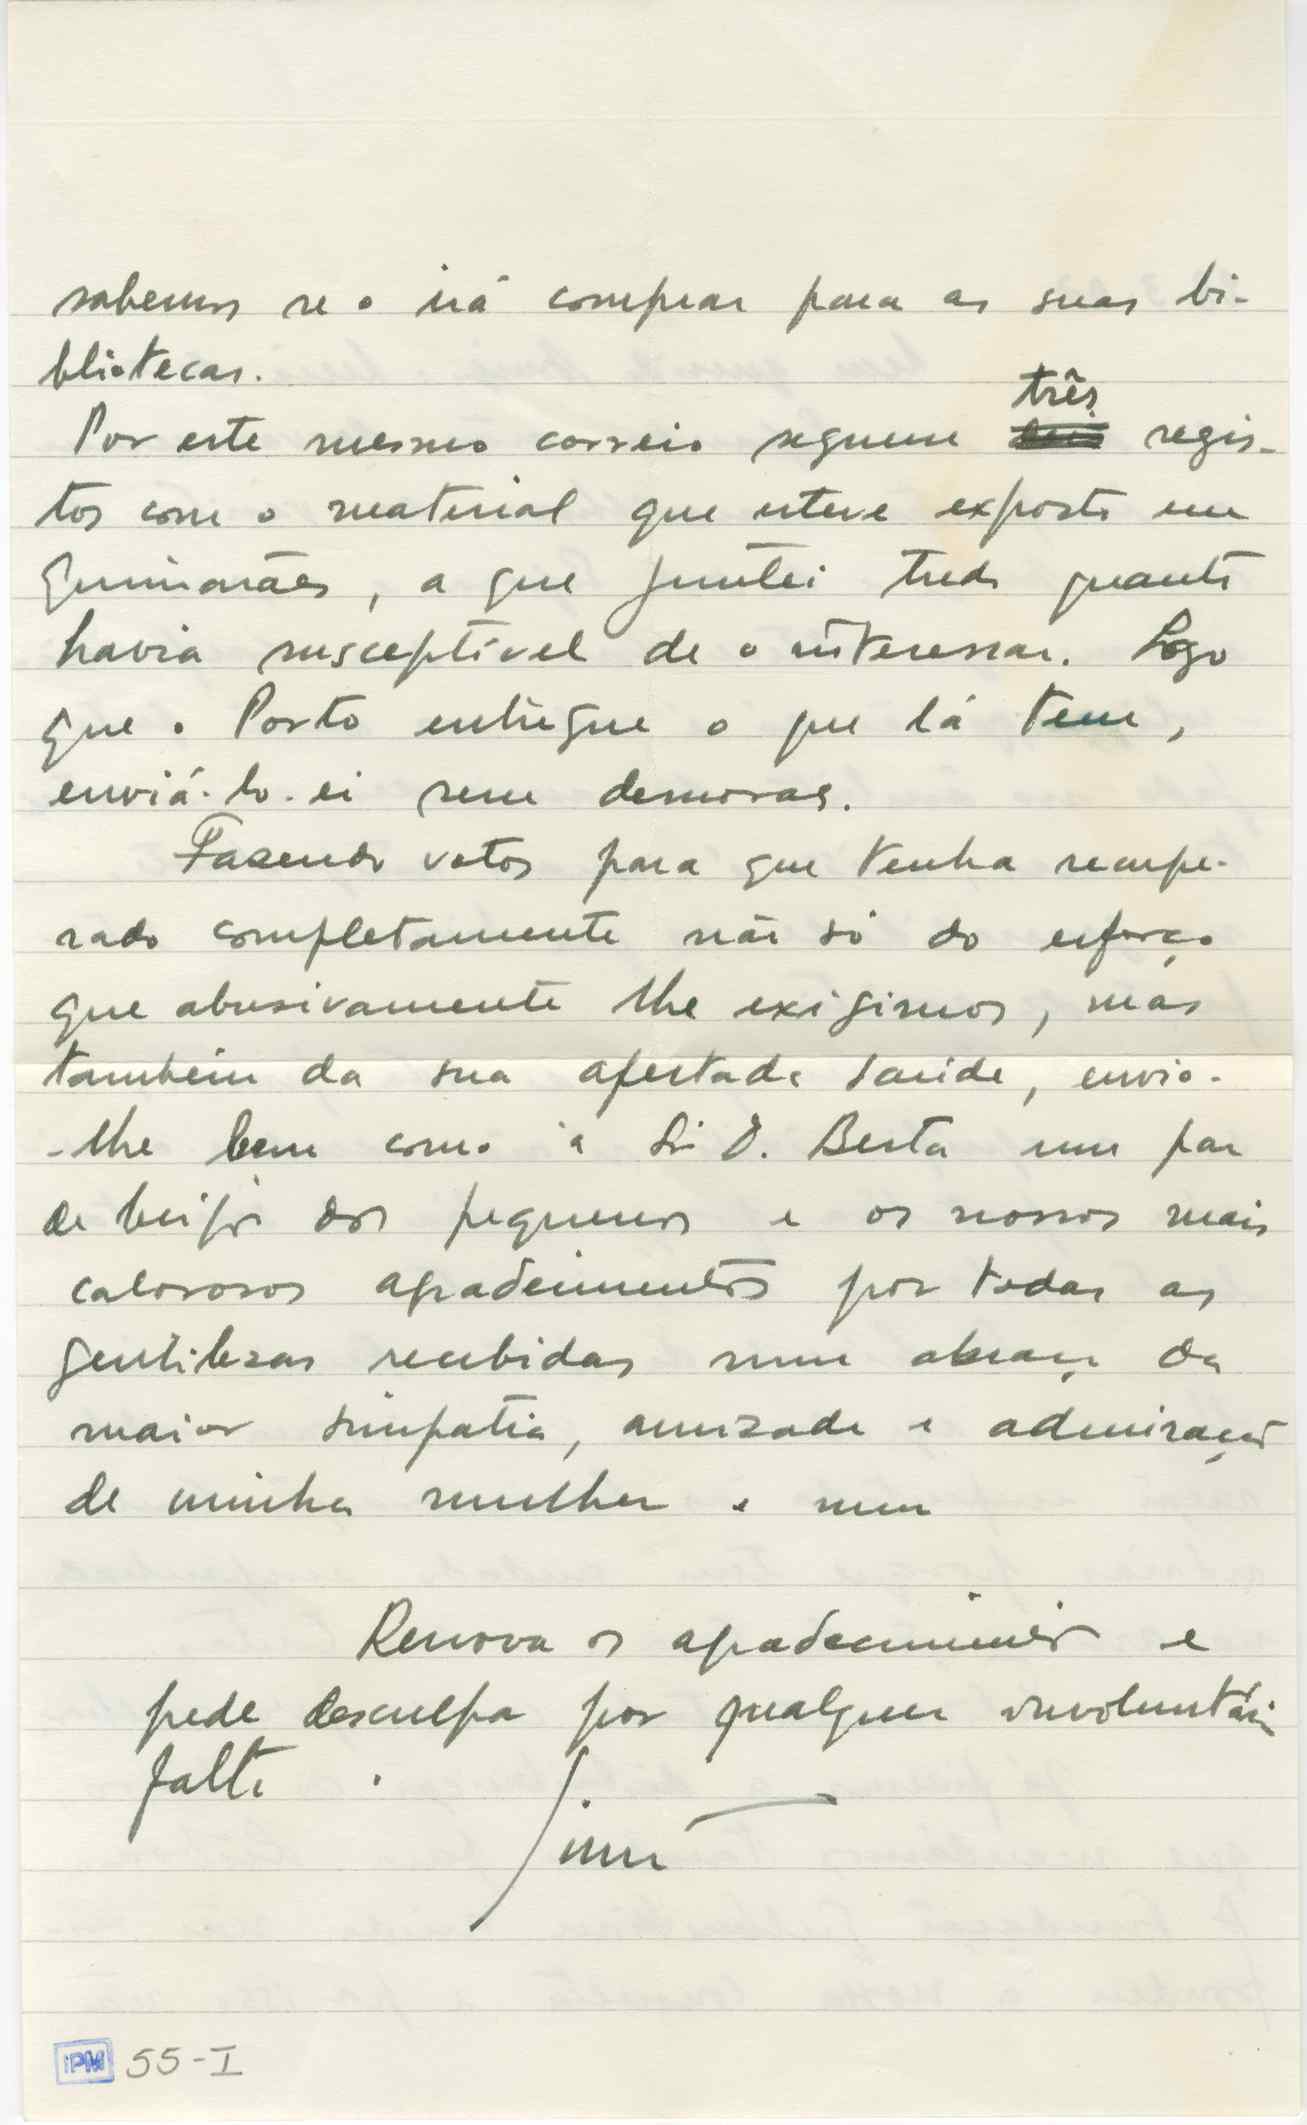 sabemos se o irá comprar para as suas bi-
bliotecas.
três
Por este mesmo correio seguem regis-
tos com o material que esteve exposto em
Guimarães, a que juntei tudo quanto
havia susceptível de o interessar. Logo
que o Porto entregue o que lá tem,
enviá-lo-ei sem demoras.
Fazendo votos para que tenha recupe-
rado completamente não só do esforço
que abusivamente lhe exigimos, mas
também da sua afectada saúde, envio-
-lhe bem como à Sr.ª D. Berta um par
de beijos dos pequenos e os nossos mais
calorosos agradecimentos por todas as
gentilezas recebidas num abraço da
maior simpatia, amizade e admiração
de minha mulher e meu
Renova os agradecimentos e
pede desculpa por qualquer involuntária
falta.
IPM 55-I